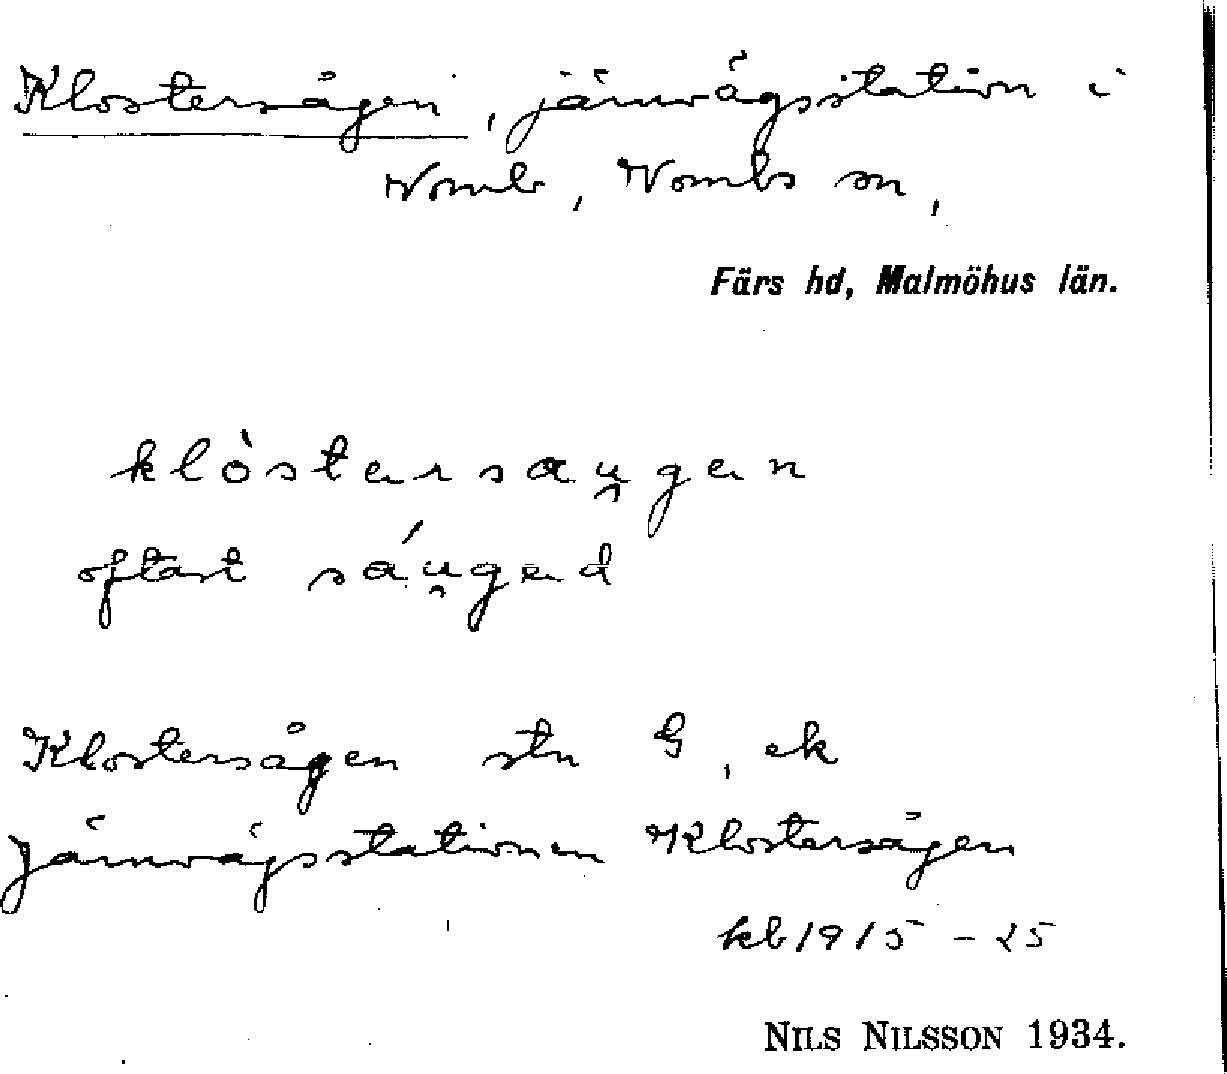 Klostersågen, järnvägsstation i
Vomb, Vombs sn,
Färs hd, Malmöhus län.
klòstersau̯gen
oftast sáu̯gend
Klostersågen stn G, ek
Järnvägsstationen Klostersågen
kb 1915-25
NILS NILSSON 1934.